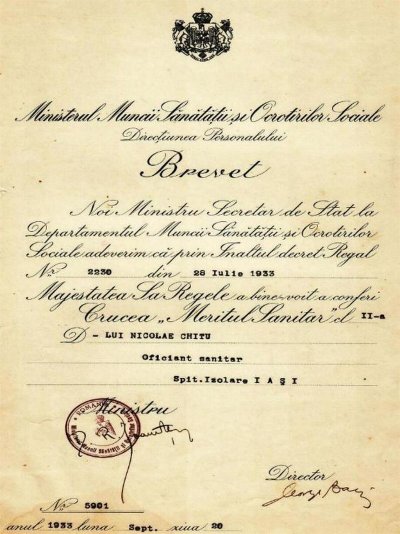 Ministerul Muncii Sănătății și Ocrotirilor Sociale
Direcțiunea Personalului
Brevet
Noi Ministru Secretar de Stat la
Departamentul Muncii Sănătății și Ocrotirilor
Sociale adeverim că prin Înaltul decret Regal
Nr. 2230 din 28 Iulie 1933
Majestatea Sa Regele a bine-voit a conferi
Crucea „Meritul Sanitar" cl. II-a
D - LUI NICOLAE CHITU
Oficiant sanitar
Spit.Izolare IAȘI
Ministru
ROMANIA
Director
Nr. 5901
anul 1933 luna Sept. ziua 20